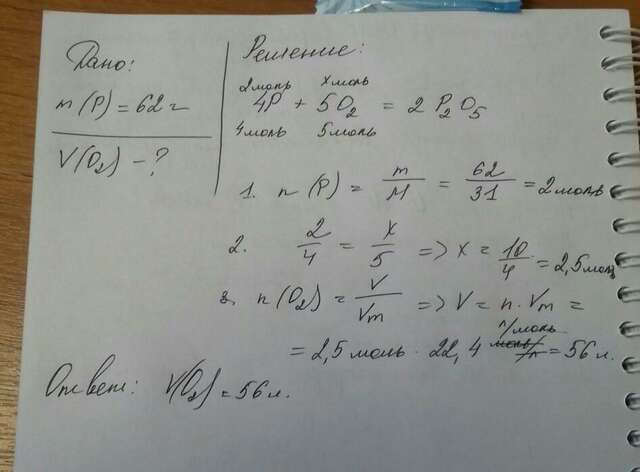 Дано:
m(P) = 62 г
V(O₂) - ?
Решение:
2моль x моль
4P + 5O₂ = 2 P₂O₅
4моль 5моль
1. n(P) = m/M = 62/31 = 2моль
2. 2/4 = x/5 => x = 10/4 = 2,5моль
3. n(O₂) = V/Vm => V = n · Vm =
= 2,5моль · 22,4 л/моль = 56 л.
Ответ: V(O₂) = 56 л.